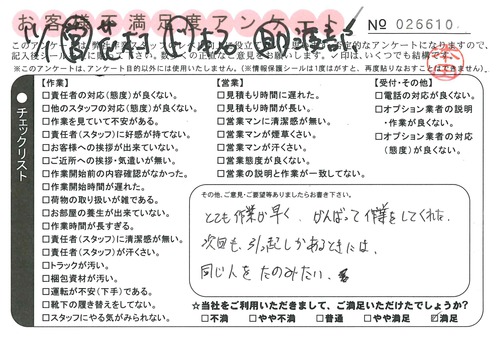 お客様満足度アンケート
№ 026610.
記入後シールを 正 ご意見をお願いします。✓印は、いくつでも結構です。
※このアンケートは、アンケート目的以外には使用いたしません。(※情報保護シールは1度はがすと、再度貼りなおすことは
チェックリスト
【作業】
□責任者の対応(態度)が良くない。
□他のスタッフの対応(態度)が良くない。
□作業を見ていて不安がある。
□責任者(スタッフ)に好感が持てない。
□お客様への挨拶が出来ていない。
□ご近所への挨拶・気遣いが無い。
□作業開始前の内容確認がなかった。
□作業開始時間が遅れた。
□荷物の取り扱いが雑である。
□お部屋の養生が出来ていない。
□作業時間が長すぎる。
□責任者(スタッフ)に清潔感が無い。
□責任者(スタッフ)が汗くさい。
□トラックが汚い。
□梱包資材が汚い。
□運転が不安(下手)である。
□靴下の履き替えをしてない。
□スタッフにやる気がみられない。
【営業】
□見積もり時間に遅れた。
□見積もり時間が長い。
□営業マンに清潔感が無い。
□営業マンが煙草くさい。
□営業マンが汗くさい。
□営業態度が良くない。
□営業の説明と作業が一致してない。
【受付・その他】
□電話の対応が良くない。
□オプション業者の説明
・作業が良くない。
□オプション業者の対応
(態度)が良くない。
その他、ご意見・ご要望等ありましたらお書き下さい。
とても作業が早く、がんばって作業をしてくれた
次回も、引っ起しがあるときには、
同じ人をたのみたい。
☆当社をご利用いただきまして、ご満足いただけたでしょうか?
□不満 □やや不満 □普通 □やや満足 ☑満足